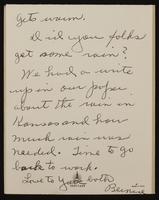 gets warm.
Did you folks
get some rain?
We had a write
up in our paper
about the rain in
Kansas and how
much rain was
needed. Time to go
back to work.
Love to you both
Bernice